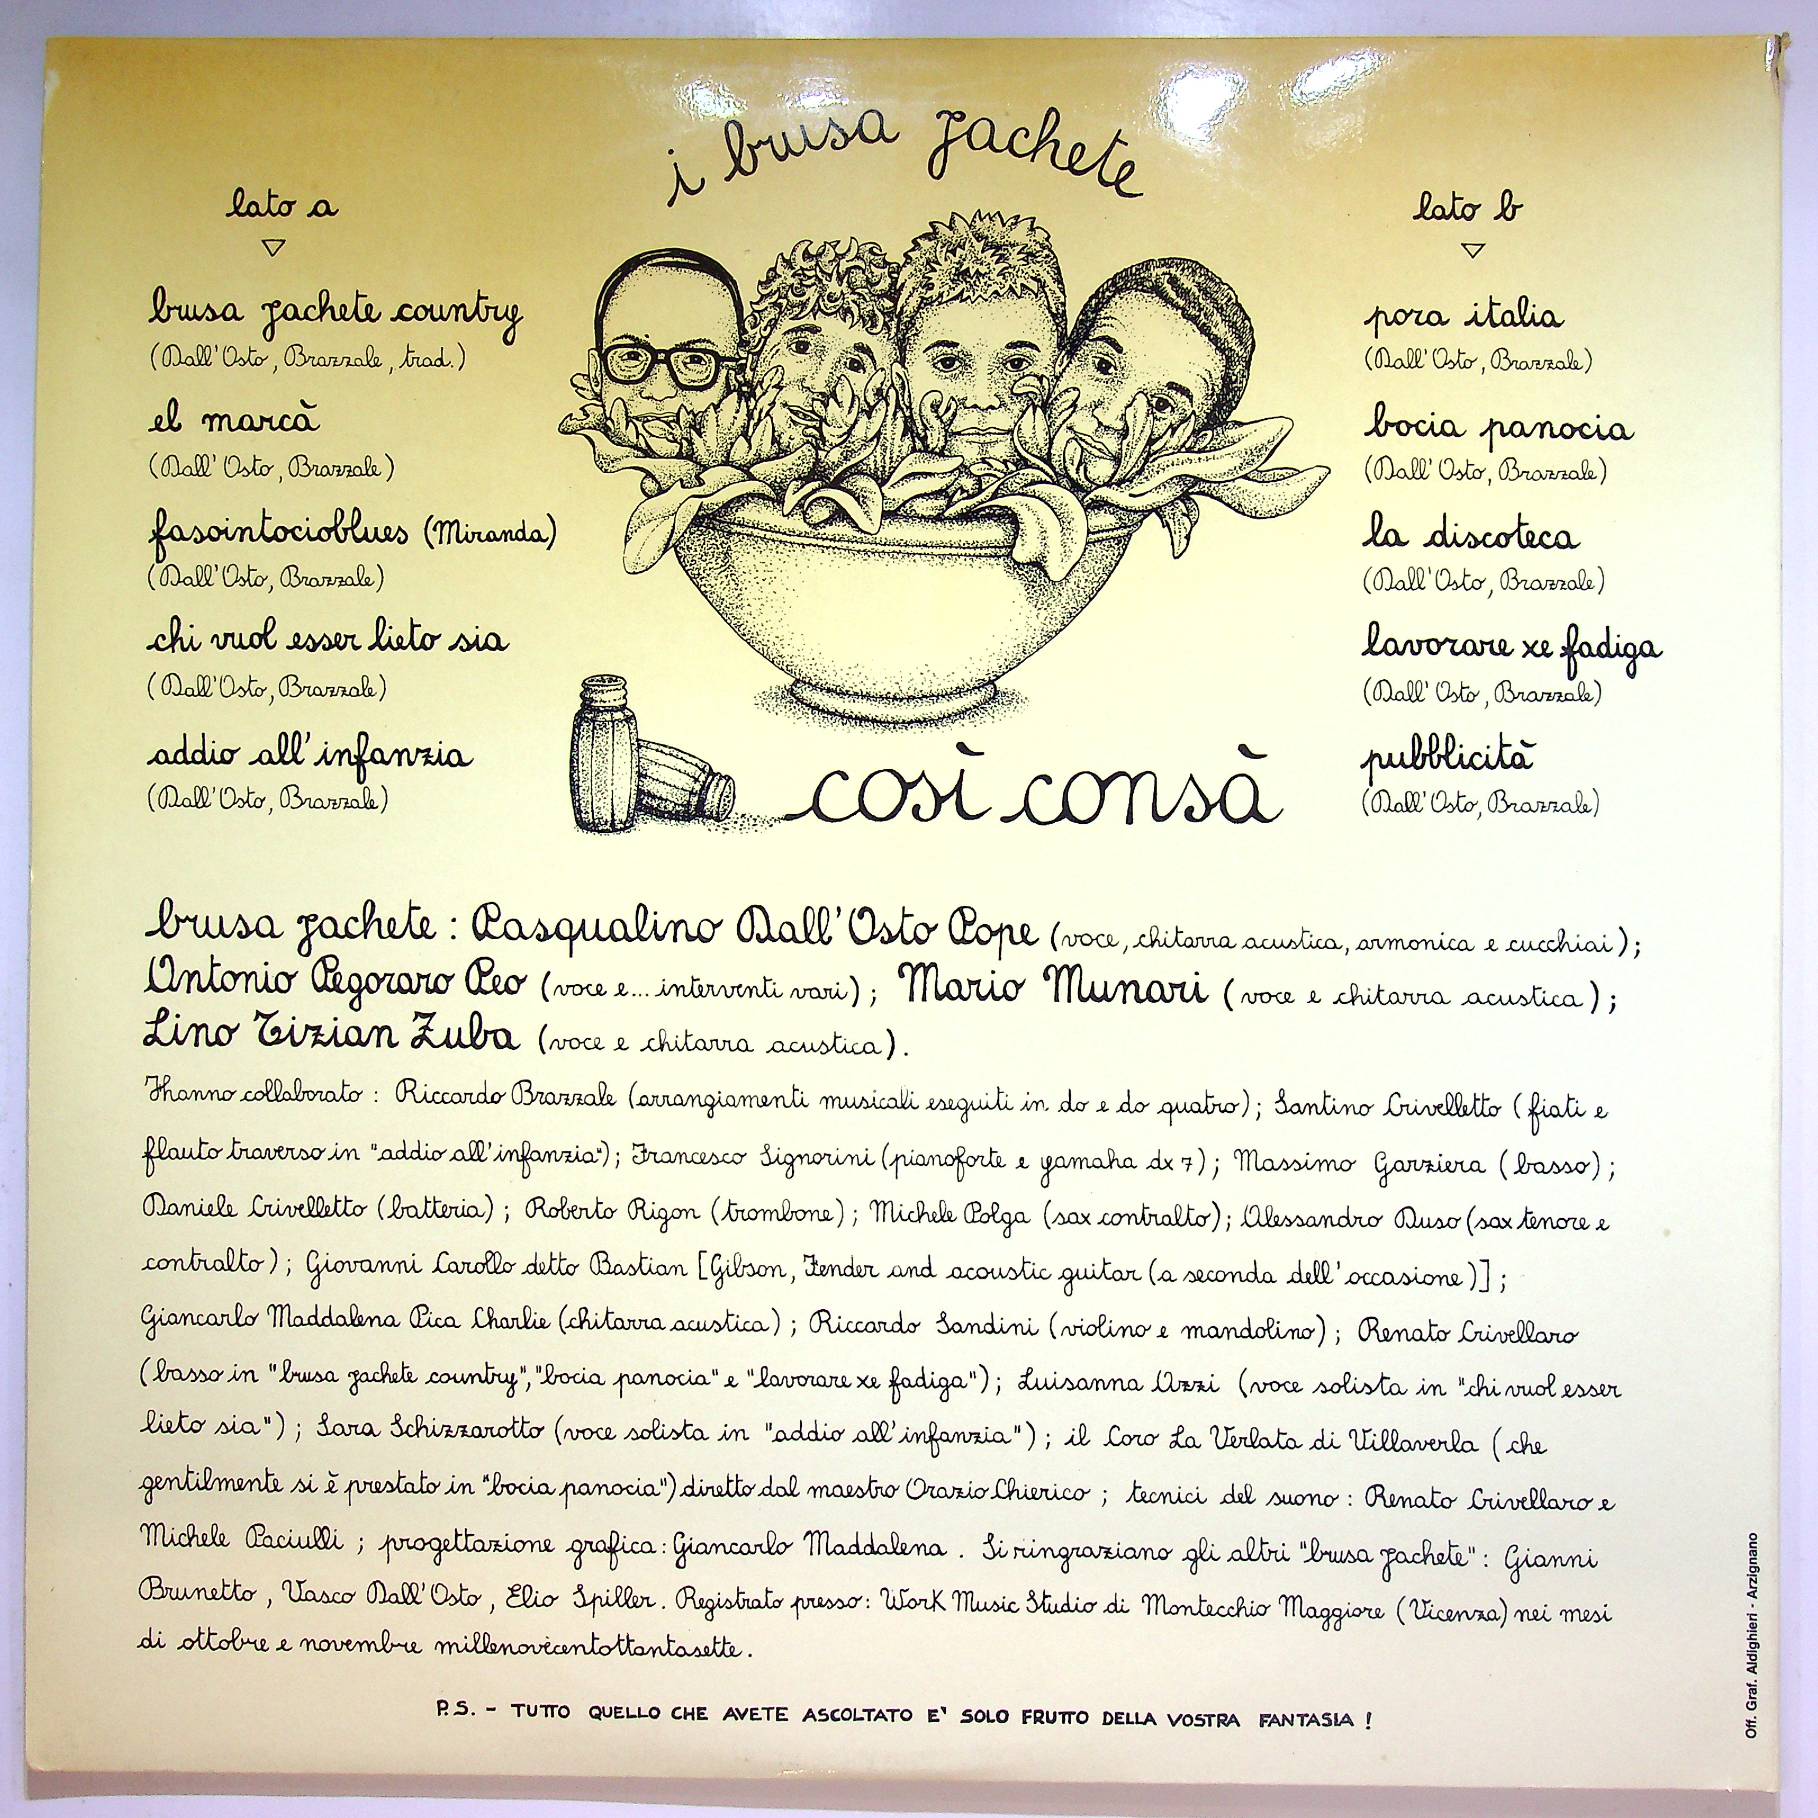 i brusa jachete
lato a
brusa jachete country
(Dall'Osto, Brazzale, trad.)
el marcà
(Dall'Osto, Brazzale)
fasointocioblues (Miranda)
(Dall'Osto, Brazzale)
chi vuol esser lieto sia
(Dall'Osto, Brazzale)
addio all'infanzia
(Dall'Osto, Brazzale)
lato b
pora italia
(Dall'Osto, Brazzale)
bocia panocia
(Dall'Osto, Brazzale)
la discoteca
(Dall'Osto, Brazzale)
lavorare xe fadiga
(Dall'Osto, Brazzale)
pubblicità
(Dall'Osto, Brazzale)
così consà
brusa jachete: Pasqualino Dall'Osto Pope (voce, chitarra acustica, armonica e cucchiai);
Antonio Pegoraro Peo (voce e... interventi vari); Mario Munari (voce e chitarra acustica);
Lino Tizian Zuba (voce e chitarra acustica).
Hanno collaborato: Riccardo Brazzale (arrangiamenti musicali eseguiti in do e do quatro); Santino Crivelletto (fiati e
flauto traverso in "addio all'infanzia"); Francesco Signorini (pianoforte e yamaha dx 7); Massimo Garziera (basso);
Daniele Crivelletto (batteria); Roberto Rigon (trombone); Michele Polga (sax contralto); Alessandro Duso (sax tenore e
contralto); Giovanni Carollo detto Bastian [Gibson, Fender and acoustic guitar (a seconda dell'occasione)];
Giancarlo Maddalena Pica Charlie (chitarra acustica); Riccardo Sandini (violino e mandolino); Renato Crivellaro
(basso in "brusa jachete country", "bocia panocia" e "lavorare xe fadiga"); Luisanna Uzzi (voce solista in "chi vuol esser
lieto sia"); Sara Schizzarotto (voce solista in "addio all'infanzia"); il Coro La Verlata di Villaverla (che
gentilmente si è prestato in "bocia panocia") diretto dal maestro Orazio Chierico; tecnici del suono: Renato Crivellaro e
Michele Paciulli; progettazione grafica: Giancarlo Maddalena. Si ringraziano gli altri "brusa jachete": Gianni
Brunetto, Vasco Dall'Osto, Elio Spiller. Registrato presso: Work Music Studio di Montecchio Maggiore (Vicenza) nei mesi
di ottobre e novembre millenovecentottantasette.
P.S. - TUTTO QUELLO CHE AVETE ASCOLTATO E' SOLO FRUTTO DELLA VOSTRA FANTASIA!
Off. Graf. Aldighieri - Arzignano